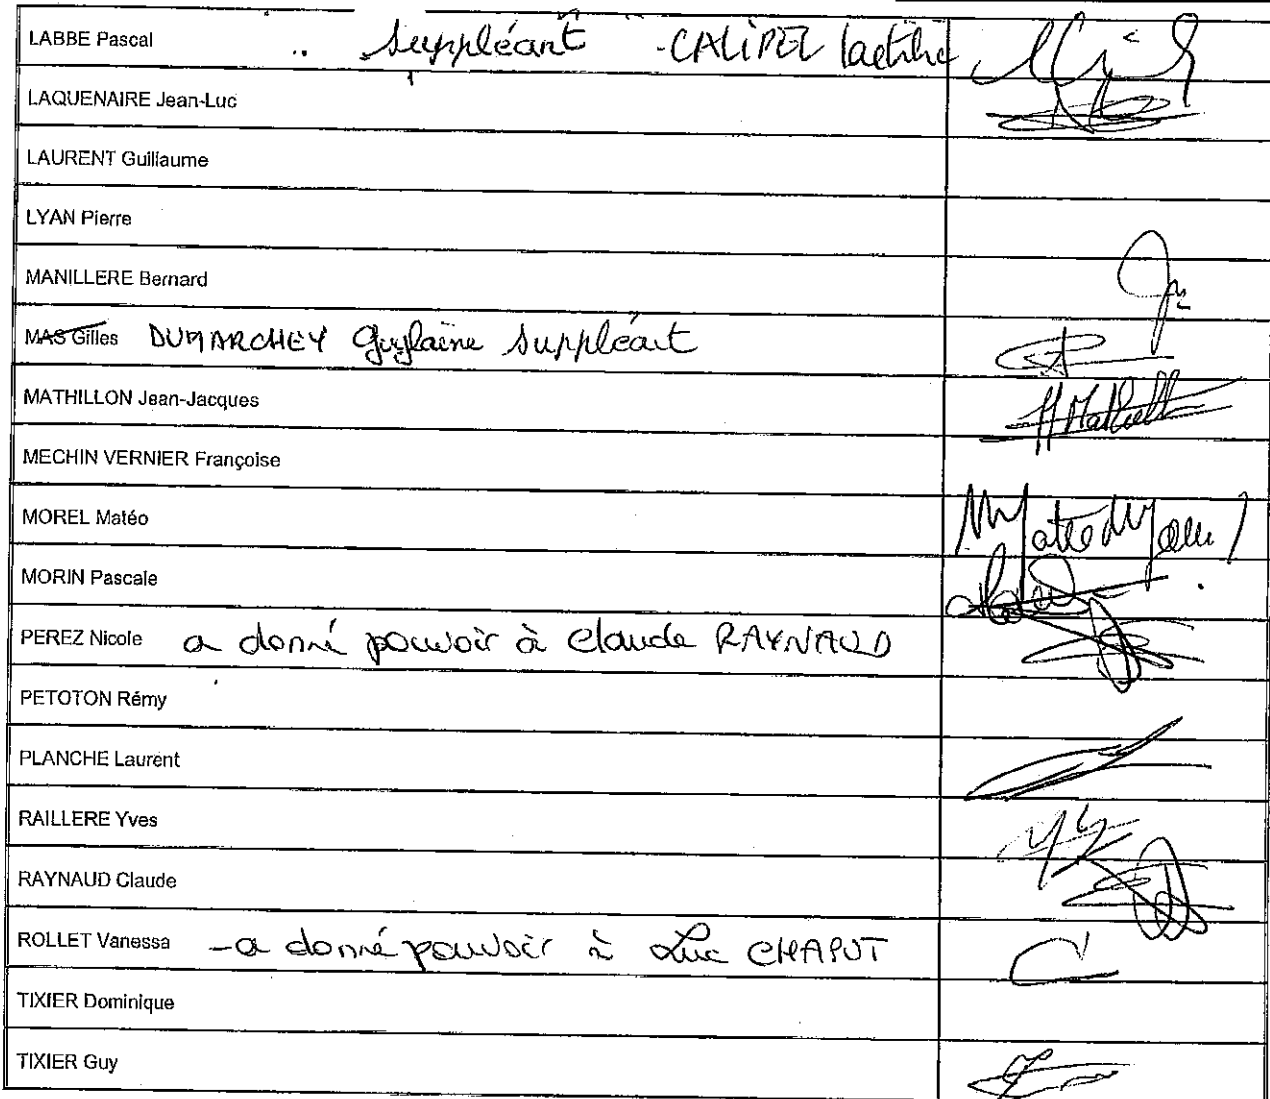 LABBE Pascal .. Suppléant - CALIPEL laetitia
LAQUENAIRE Jean-Luc
LAURENT Guillaume
LYAN Pierre
MANILLERE Bernard
MAS Gilles DUMARCHEY Guylaine Suppléant
MATHILLON Jean-Jacques
MECHIN VERNIER Françoise
MOREL Matéo
MORIN Pascale
PEREZ Nicole a donné pouvoir à Claude RAYNAUD
PETOTON Rémy
PLANCHE Laurent
RAILLERE Yves
RAYNAUD Claude
ROLLET Vanessa - a donné pouvoir à Luc CHAPUT
TIXIER Dominique
TIXIER Guy